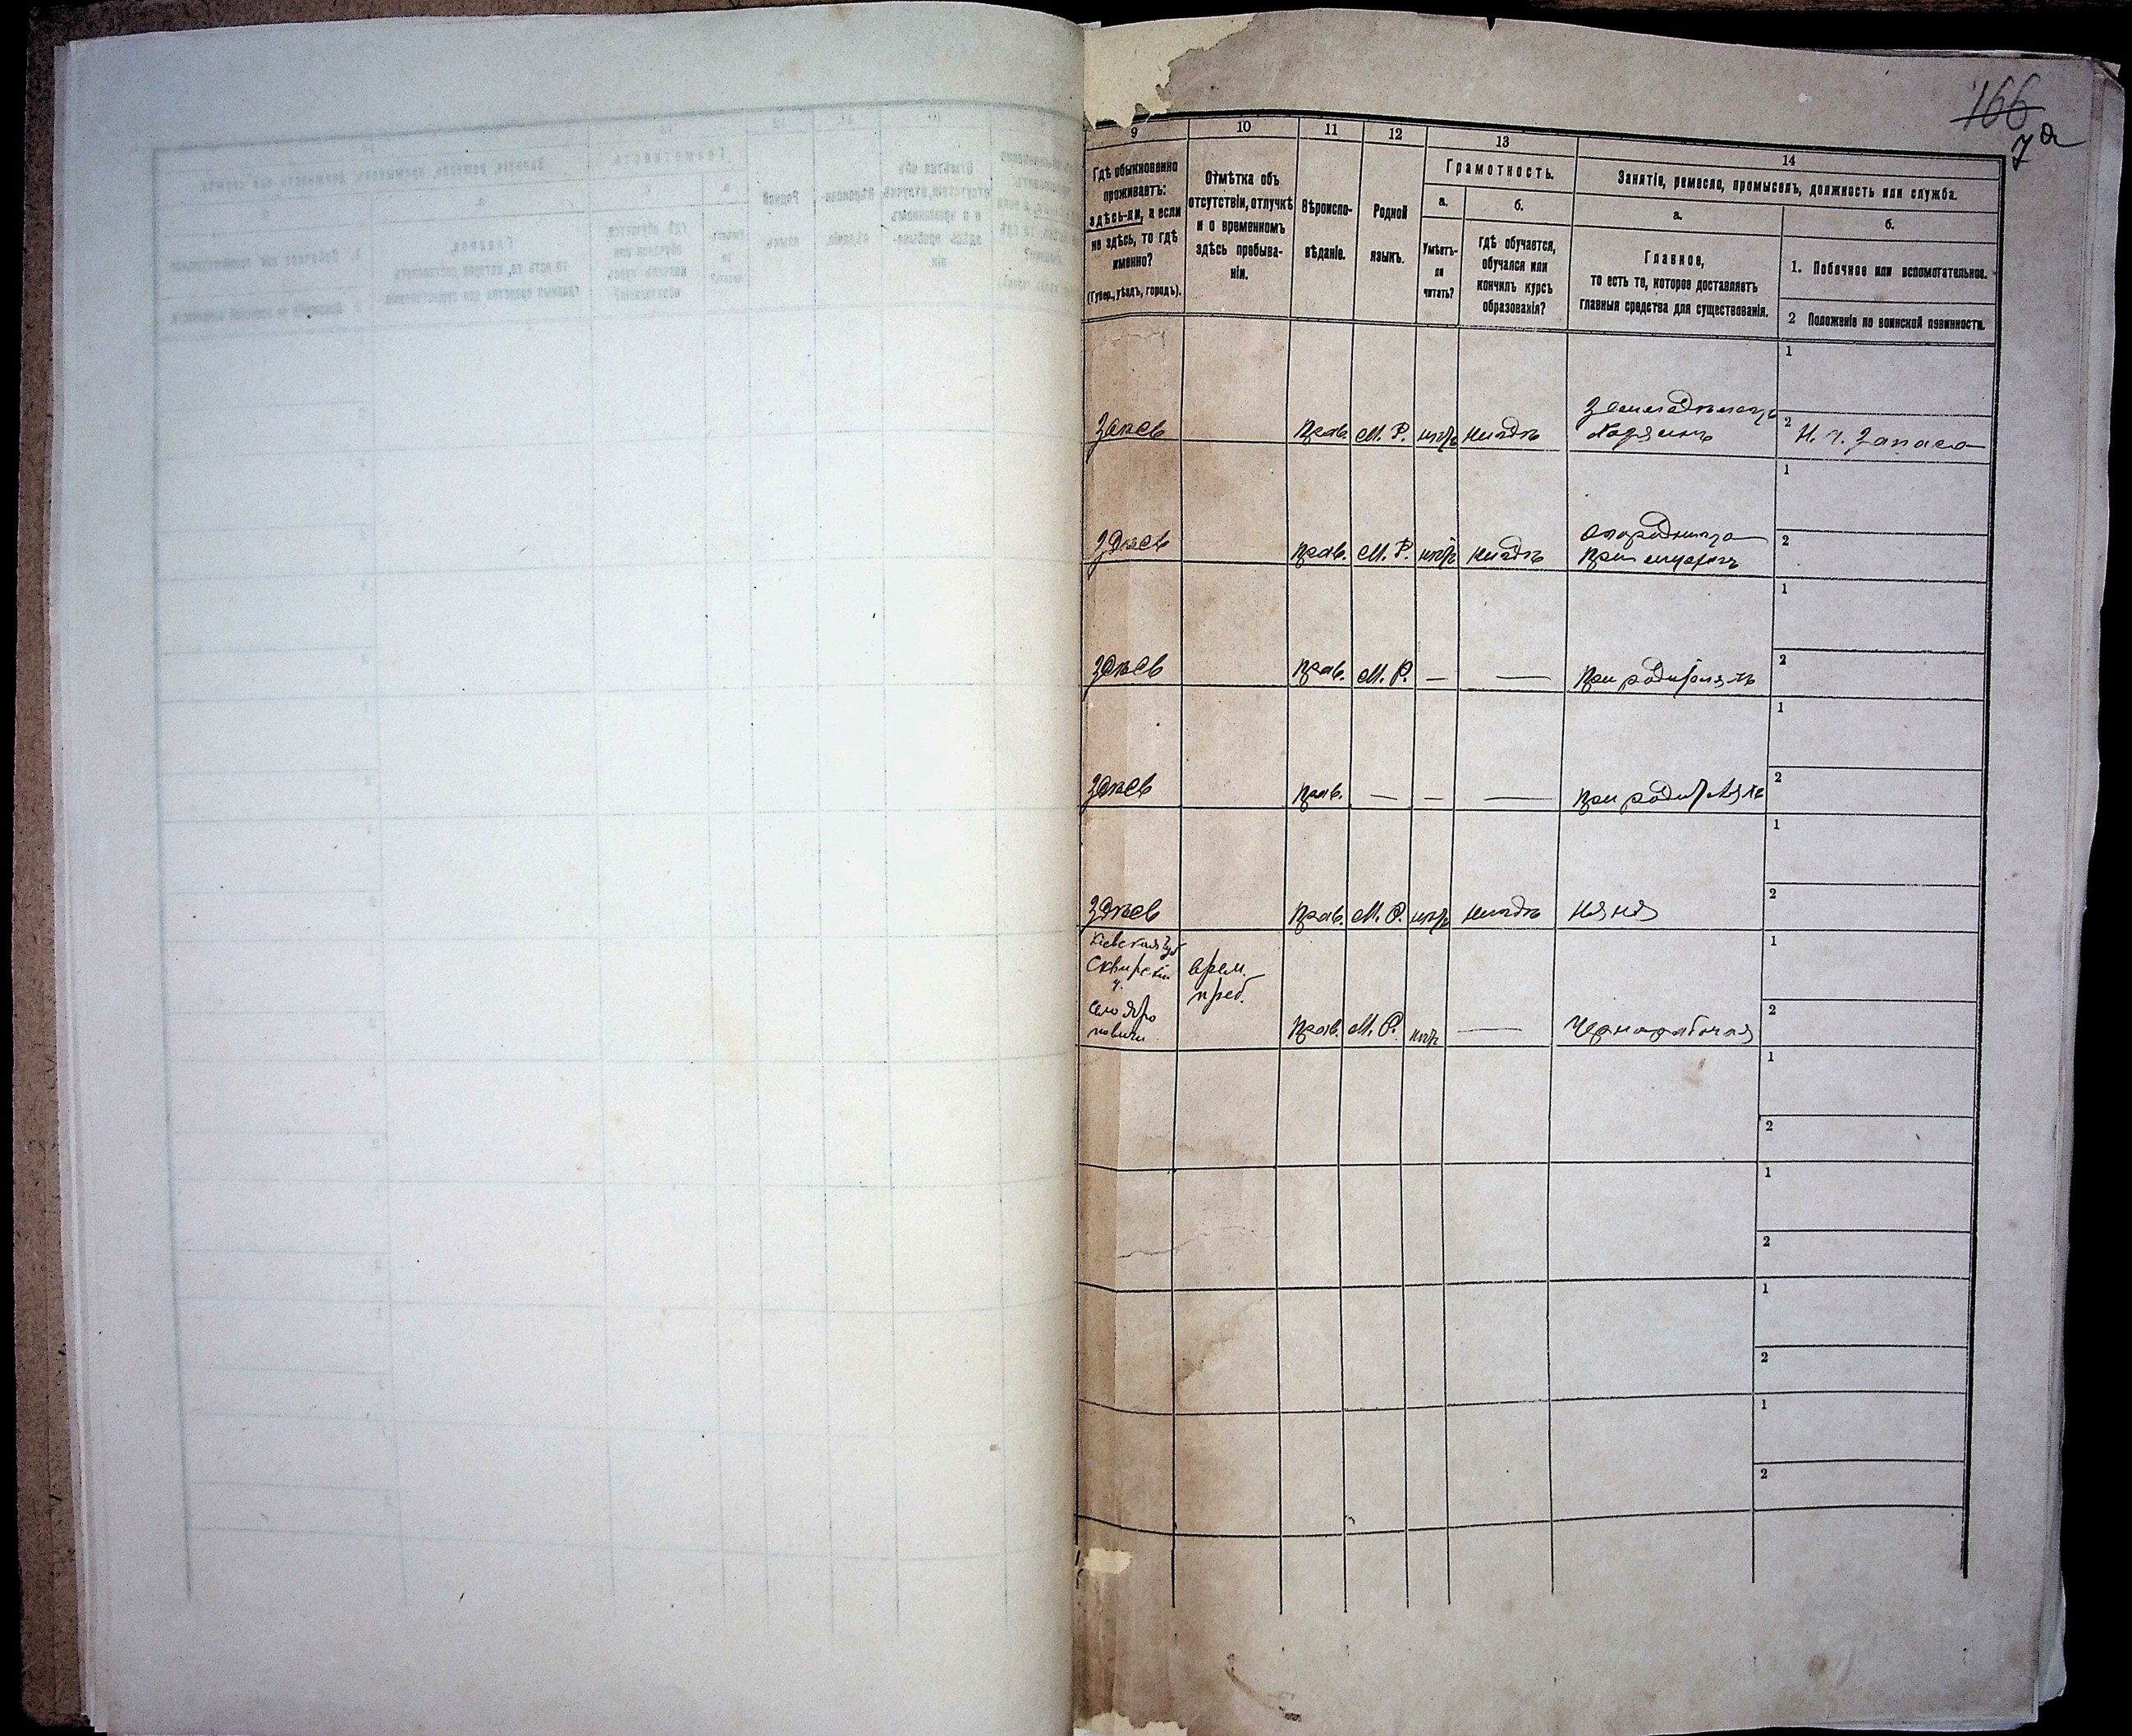 166
7а
9 10 11 12 13 14
Гдѣ обыкновенно
проживаетъ:
здѣсь-ли, а если
не здѣсь, то гдѣ
именно?
(Губер., уѣздъ, городъ).
Отмѣтка объ
отсутствіи, отлучкѣ
и о временномъ
здѣсь пребыва-
ніи.
Вѣроиспо-
вѣданіе.
Родной
языкъ.
Грамотность.
а.
Умѣетъ-
ли
читать?
б.
гдѣ обучается,
обучался или
кончилъ курсъ
образованія?
Занятіе, ремесло, промыселъ, должность или служба.
а.
Главное,
то есть то, которое доставляетъ
главныя средства для существованія.
б.
1. Побочное или вспомогательное.
2 Положеніе по воинской повинности.
1
Земледѣлецъ
Здѣсь Прав. М. Р. нѣтъ нигдѣ Хозяинъ 2 Н. ч. Запаса
1
Здѣсь Прав. М. Р. нѣтъ нигдѣ При мужѣ 2
1
Здѣсь Прав. М. Р. — — При родителяхъ 2
1
Здѣсь Прав. — — — При родителяхъ 2
1
Здѣсь Прав. М. Р. нѣтъ нигдѣ няня 2
Кіевская губ 1
Сквирскій врем.
у. преб.
село Яро 2
повичи Прав. М. Р. нѣтъ — Чернорабочая
1
2
1
2
1
2
1
2